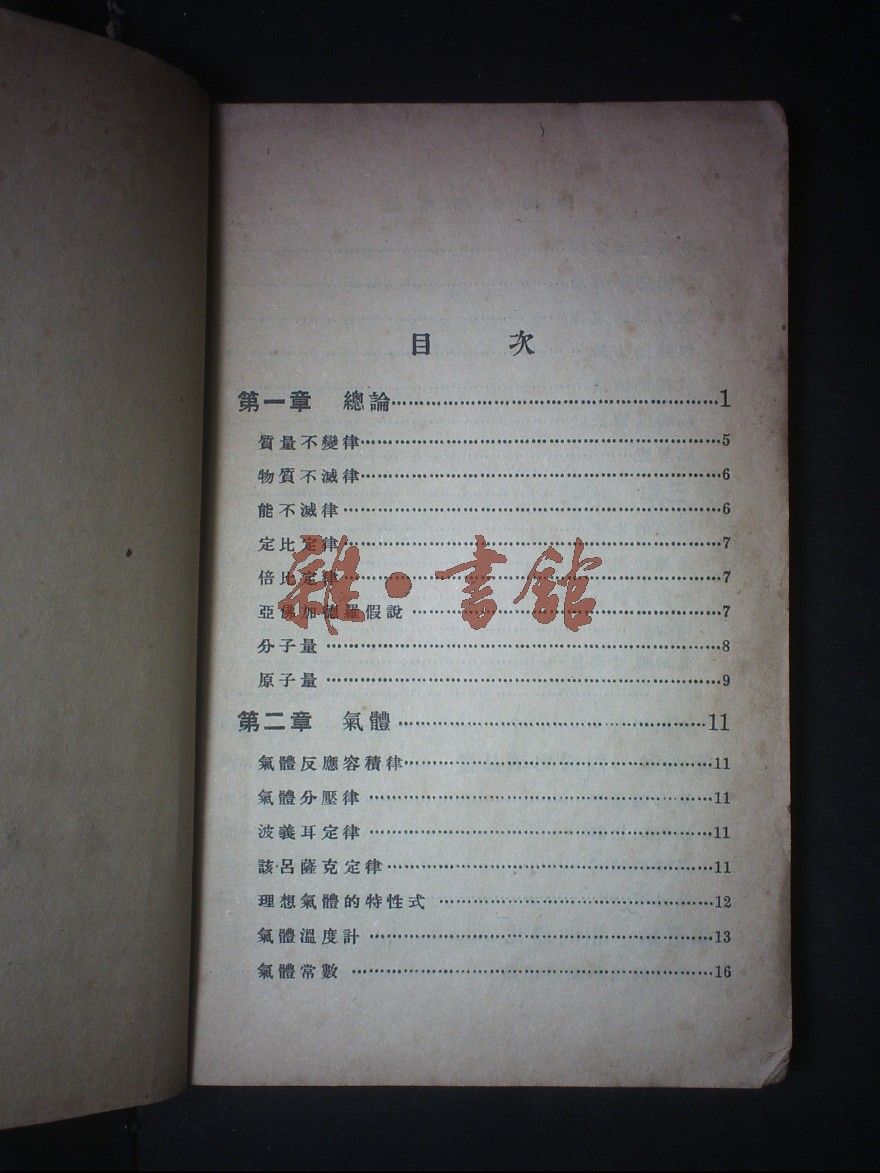 目 次
第一章 總論……1
質量不變律……5
物質不滅律……6
能不滅律……6
定比定律……7
倍比定律……7
亞佛加德羅假說……7
分子量……8
原子量……9
第二章 氣體……11
氣體反應容積律……11
氣體分壓律……11
波義耳定律……11
該·呂薩克定律……11
理想氣體的特性式……12
氣體溫度計……13
氣體常數……16
雜·書館